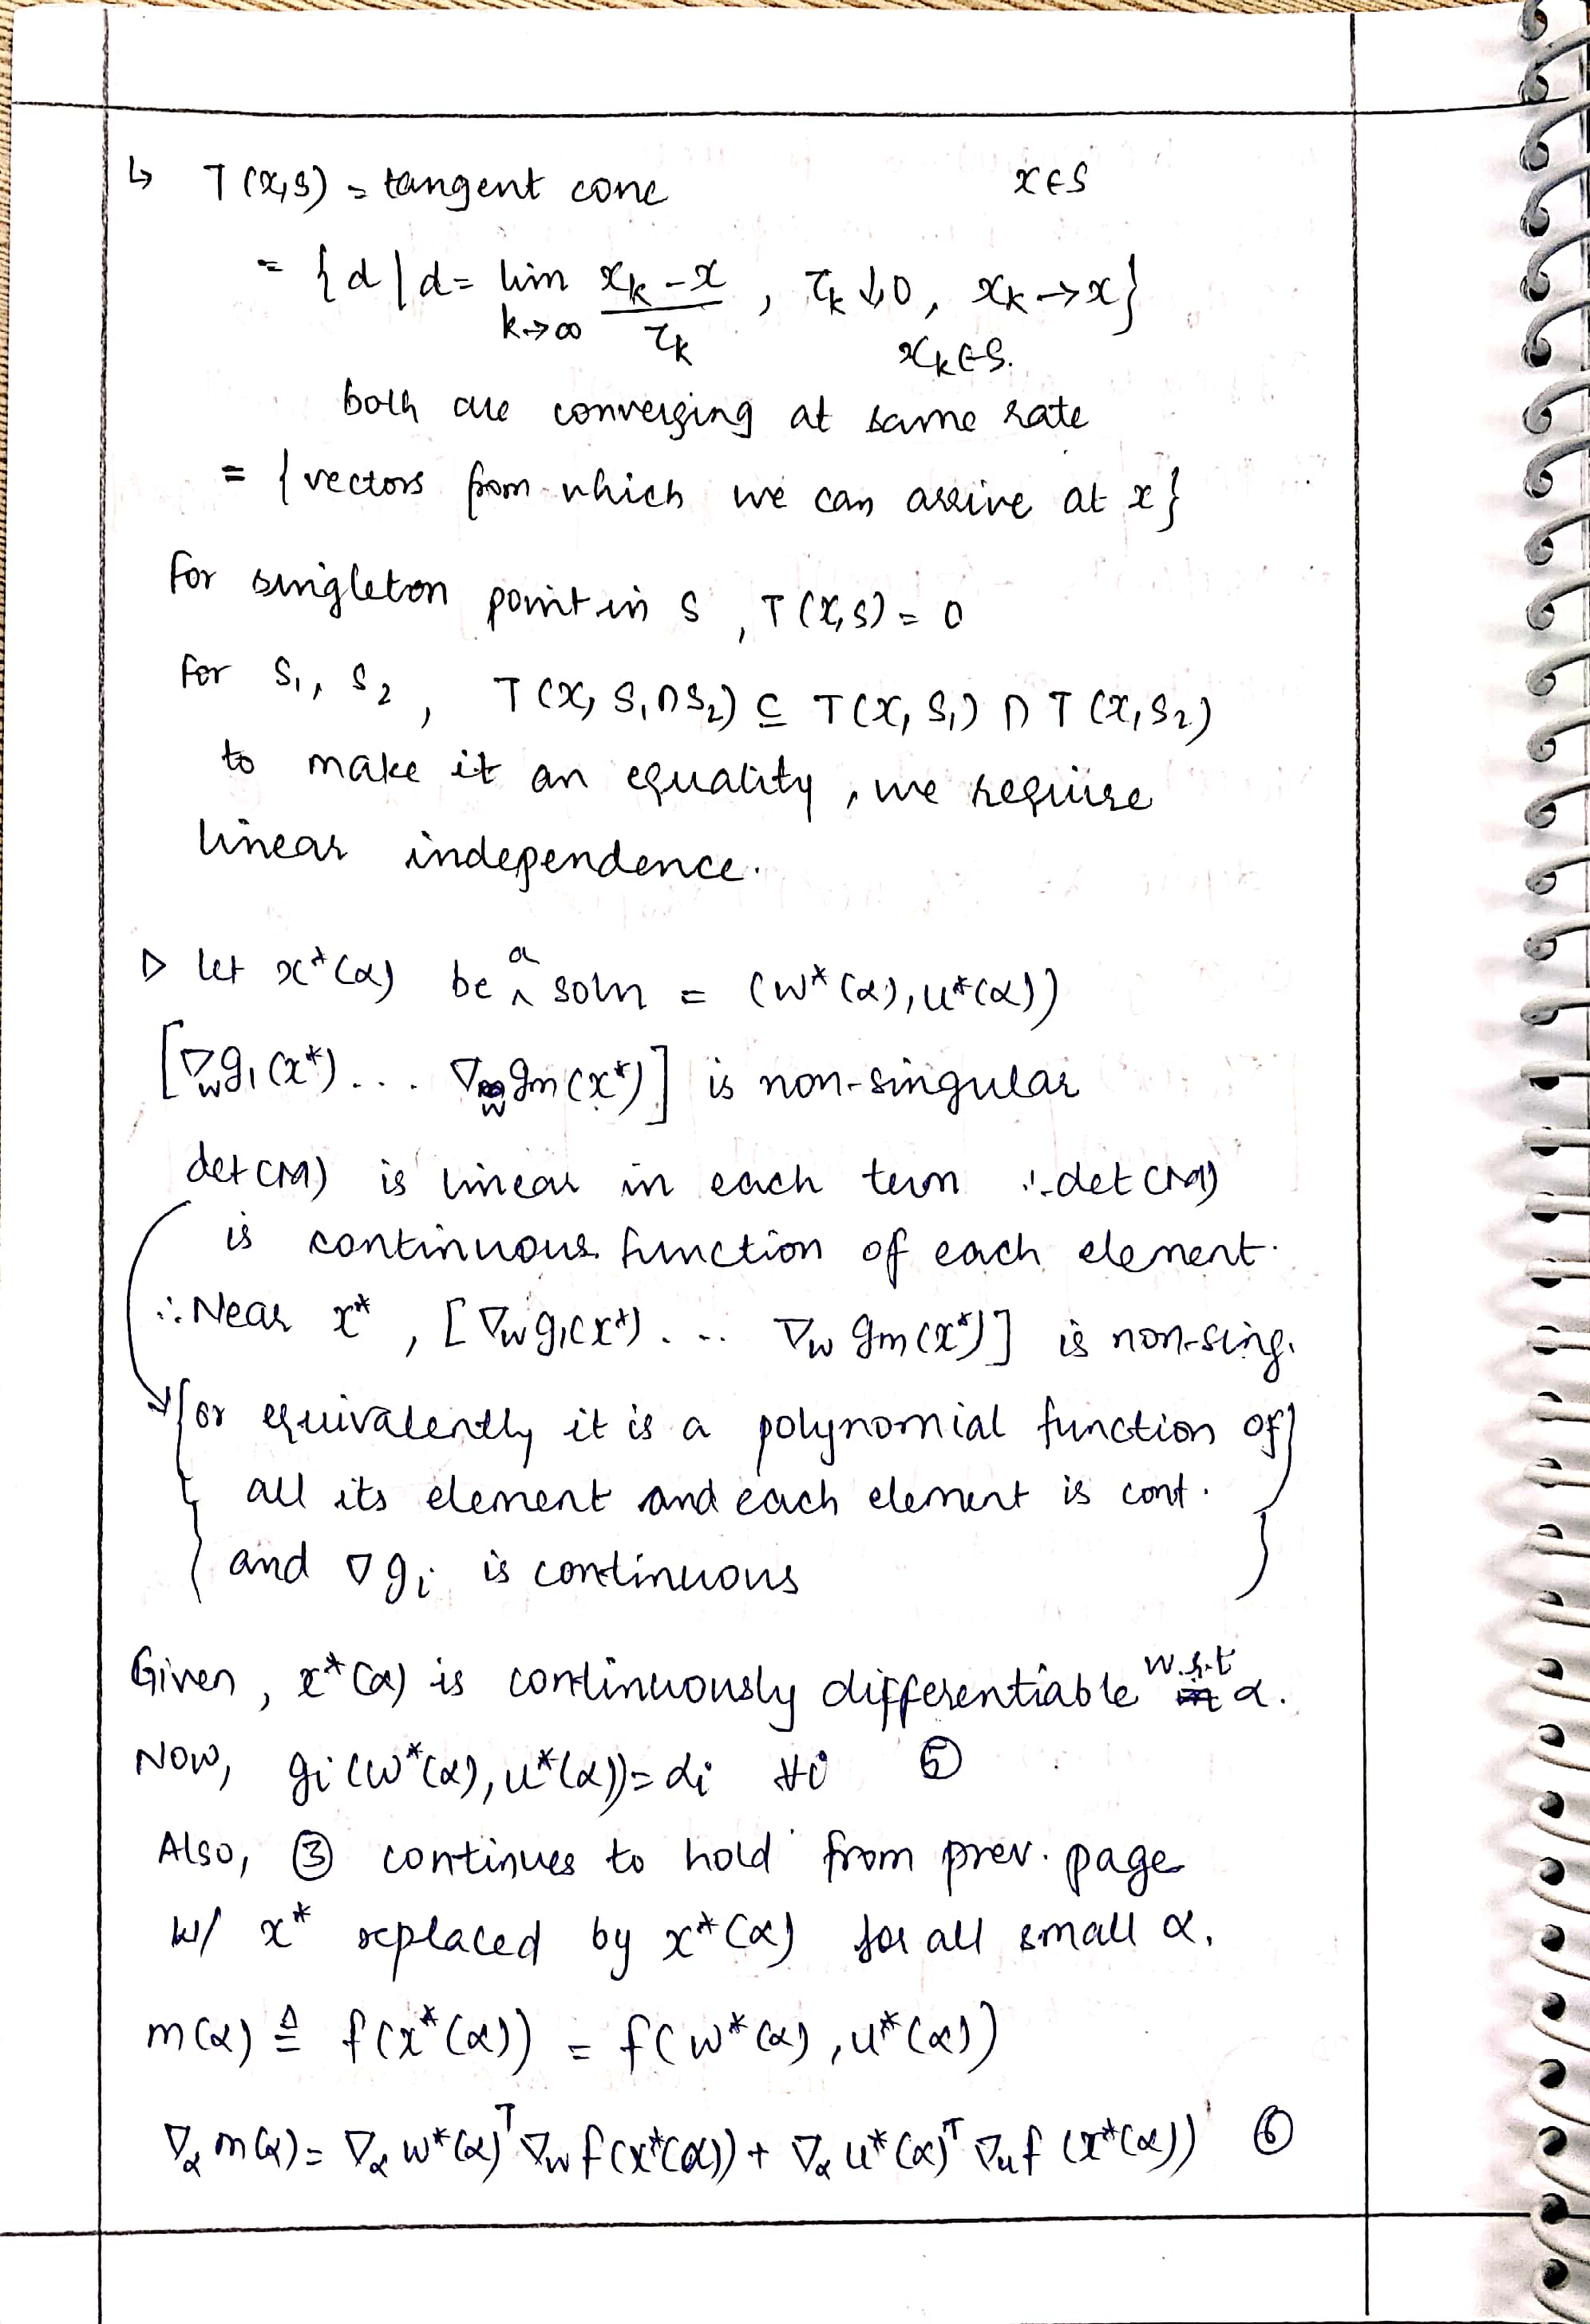 ↳ T(x,S) = tangent cone x∈S
= {d | d = lim x_k - x , τ_k ↓0, x_k → x}
k→∞ τ_k x_k∈S.
both are converging at same rate
= {vectors from which we can arrive at x}
For singleton point in S, T(x,S) = 0
For S₁, S₂, T(x, S₁∩S₂) ⊆ T(x, S₁) ∩ T(x, S₂)
to make it an equality, we require
linear independence.
▷ let x*(α) be a soln = (w*(α), u*(α))
[∇_w g₁(x*) ... ∇_w g_m(x*)] is non-singular
det(M) is linear in each term ∴ det(M)
is continuous function of each element.
∴ Near x*, [∇_w g₁(x*) ... ∇_w g_m(x*)] is non-sing.
{or equivalently it is a polynomial function of}
all its element and each element is cont.
and ∇g_i is continuous
Given, x*(α) is continuously differentiable w.r.t α.
Now, g_i(w*(α), u*(α)) = α_i ∀i ⑤
Also, ③ continues to hold from prev. page
w/ x* replaced by x*(α) for all small α.
m(α) ≜ f(x*(α)) = f(w*(α), u*(α))
∇_α m(α) = ∇_α w*(α)ᵀ ∇_w f(x*(α)) + ∇_α u*(α)ᵀ ∇_u f(x*(α)) ⑥